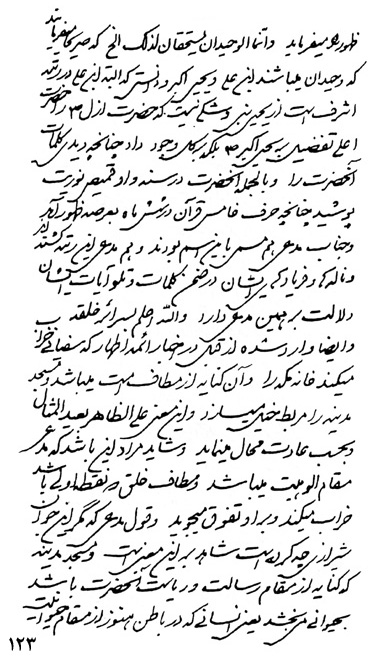 ظهوره میفرماید وانّما الوحیدان یستحقان لذلک الخ که صریحا میفرماید
که وحیدان میباشند ابن علی و یحیی اکبر و دانستی که البته ابن علی در رتبه
اشرف است از یحیی نبی و شکی نیست که حضرت ازل را حضرت
اعلی تفضیل بر یحیی اکبر بلکه بر کل وجود داد چنانچه دیدی کلمات
آنحضرت را و بالجمله آنحضرت در سنه واو قمیص نوریت
پوشید چنانچه حرف خامس قرآن در شش ماه بعرصه ظهور آمد
وجناب مدعی هم مسمی باین اسم بودند و هم مدعی این رتبه گشتند
و ناله‌ها و فریادهای ایشان در ضمن کلمات و تلو آیات ایشان
دلالت بر همین مدعی دارد والله اعلم بسرائر خلقه
وایضا وارد شده از قبل در اخبار ائمه اطهار که سفیانی خراب
میکند خانه مکه را و آن کنایه از مطاف است میباشد و مسجد
مدینه را مربط خیل میسازد و این معنی علی الظاهر بعید المثال
و بحسب عادت محال مینماید و شاید مراد این باشد که مدعی
مقام الوهیت میباشد و مطاف خلق که نقطه اولی باشد
خراب میکند و بر او تفوق میجوید و قول مدعی که گمراین جوان
شیرازی چه کرده است شاهد بر این معنی است و مسجد مدینه
که کنایه از مقام رسالت و ولایت آنحضرت باشد
بحیوانی می‌بخشد یعنی انسانی که در باطن هنوز از مقام حیوانیت
۱۲۳